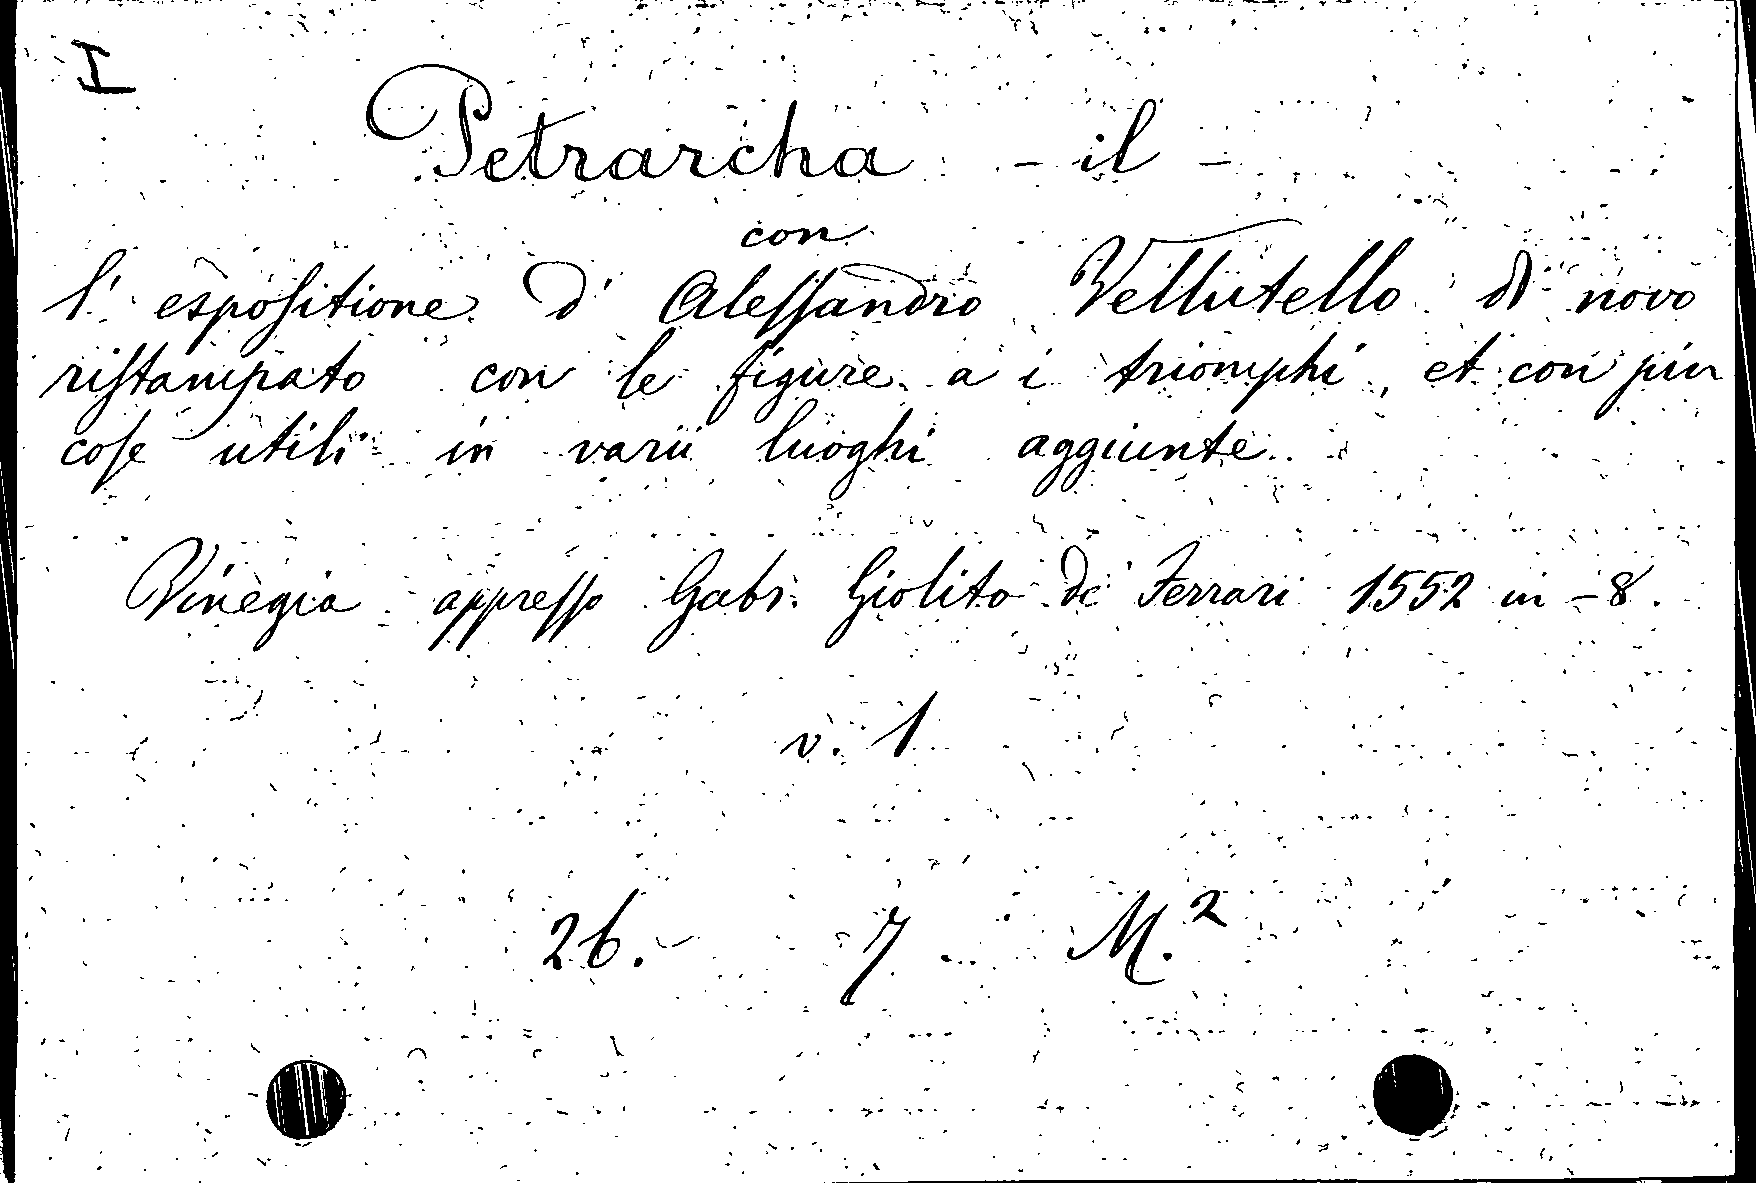 I
Petrarcha - il -
con
l' espositione d' Alessandro Vellutello di novo
ristampato con le figure a i triomphi, et con piu
cose utili in varii luoghi aggiunte
Vinegia appresso Gabr. Giolito de' Ferrari 1552 in -8.
v. 1
26. 7 M.²